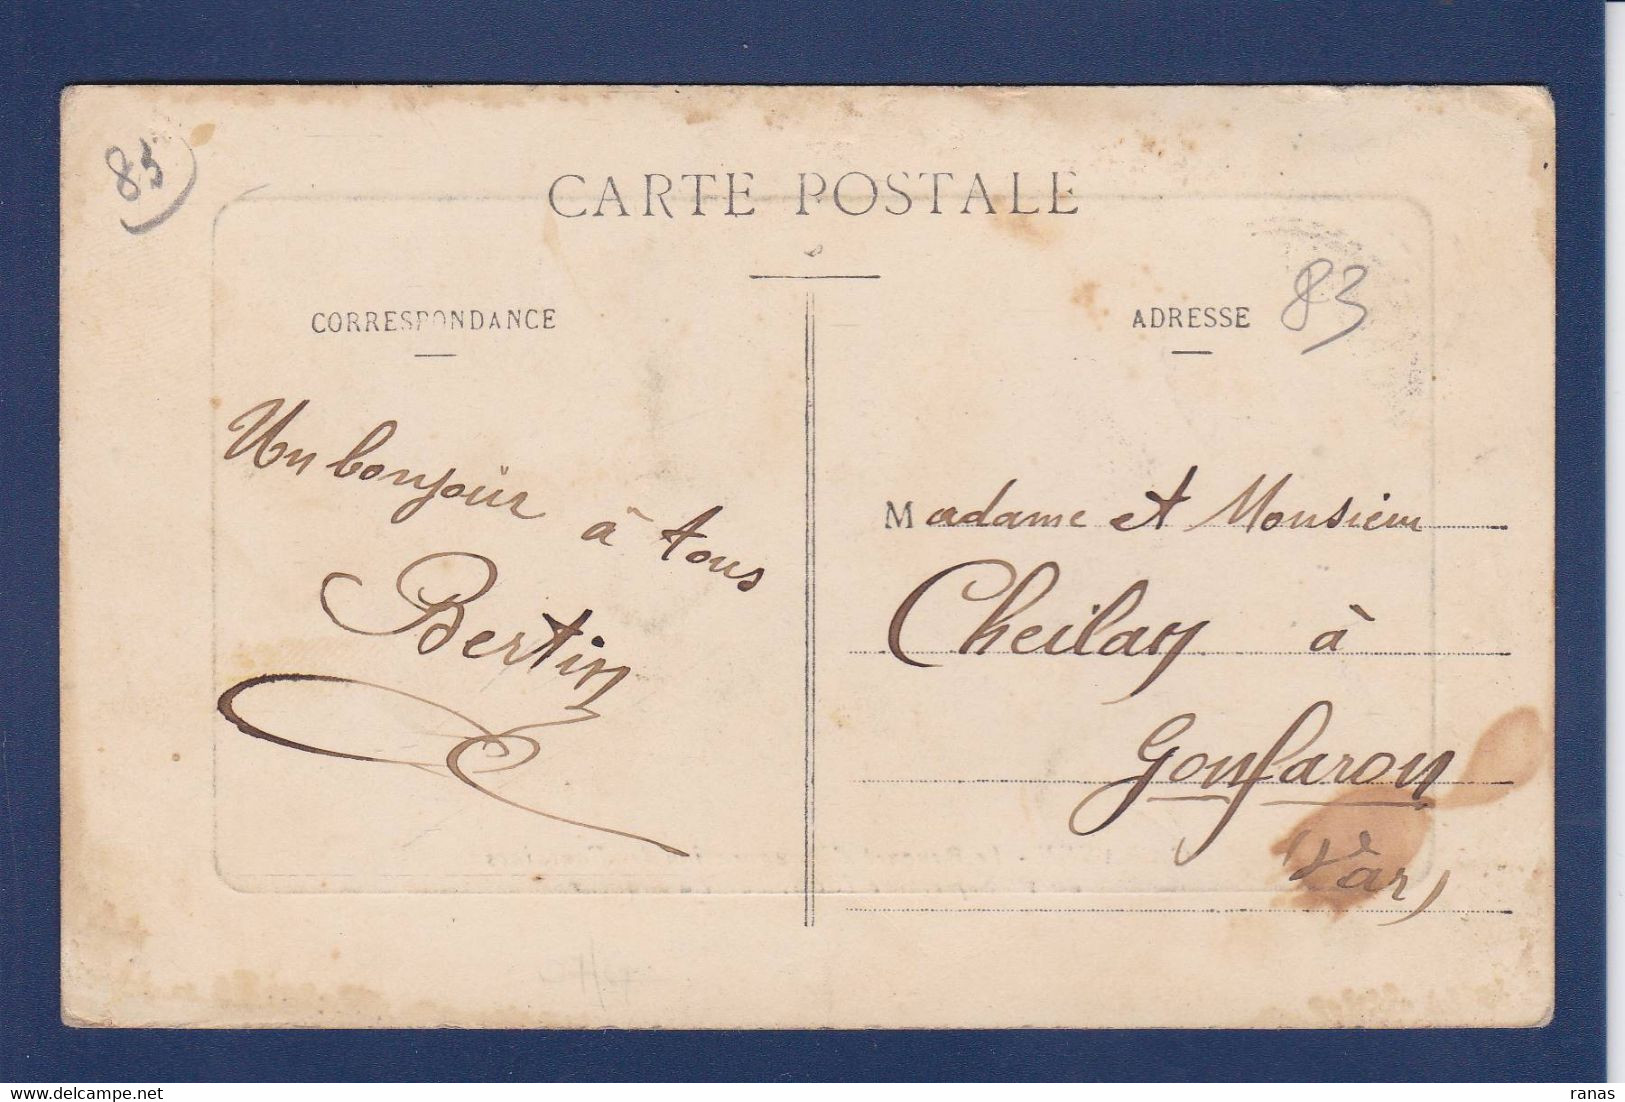 83
CARTE POSTALE
CORRESPONDANCE
ADRESSE
83
Un bonjour
à tous
Bertin
Madame et Monsieur
Cheilan à
Gonfaron
(Var)
ranas